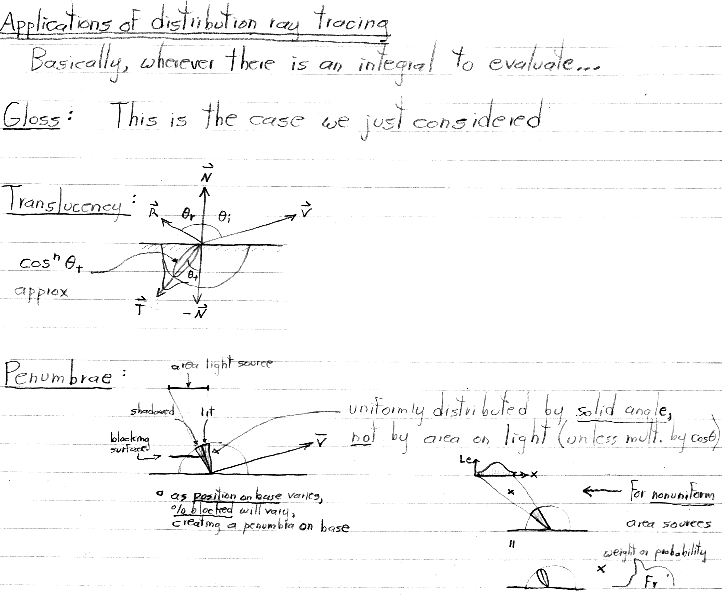 Applications of distribution ray tracing
Basically, wherever there is an integral to evaluate...
Gloss: This is the case we just considered
Translucency:
N
R
θr
θi
V
cosⁿ θt
approx
θt
T
-N
Penumbrae:
area light source
shadowed
lit
blocking
surface
V
uniformly distributed by solid angle,
not by area on light (unless mult. by cosθ)
• as position on base varies,
% blocked will vary,
creating a penumbra on base
Le
x
x
← For nonuniform
area sources
=
weight or probability
x
Fr